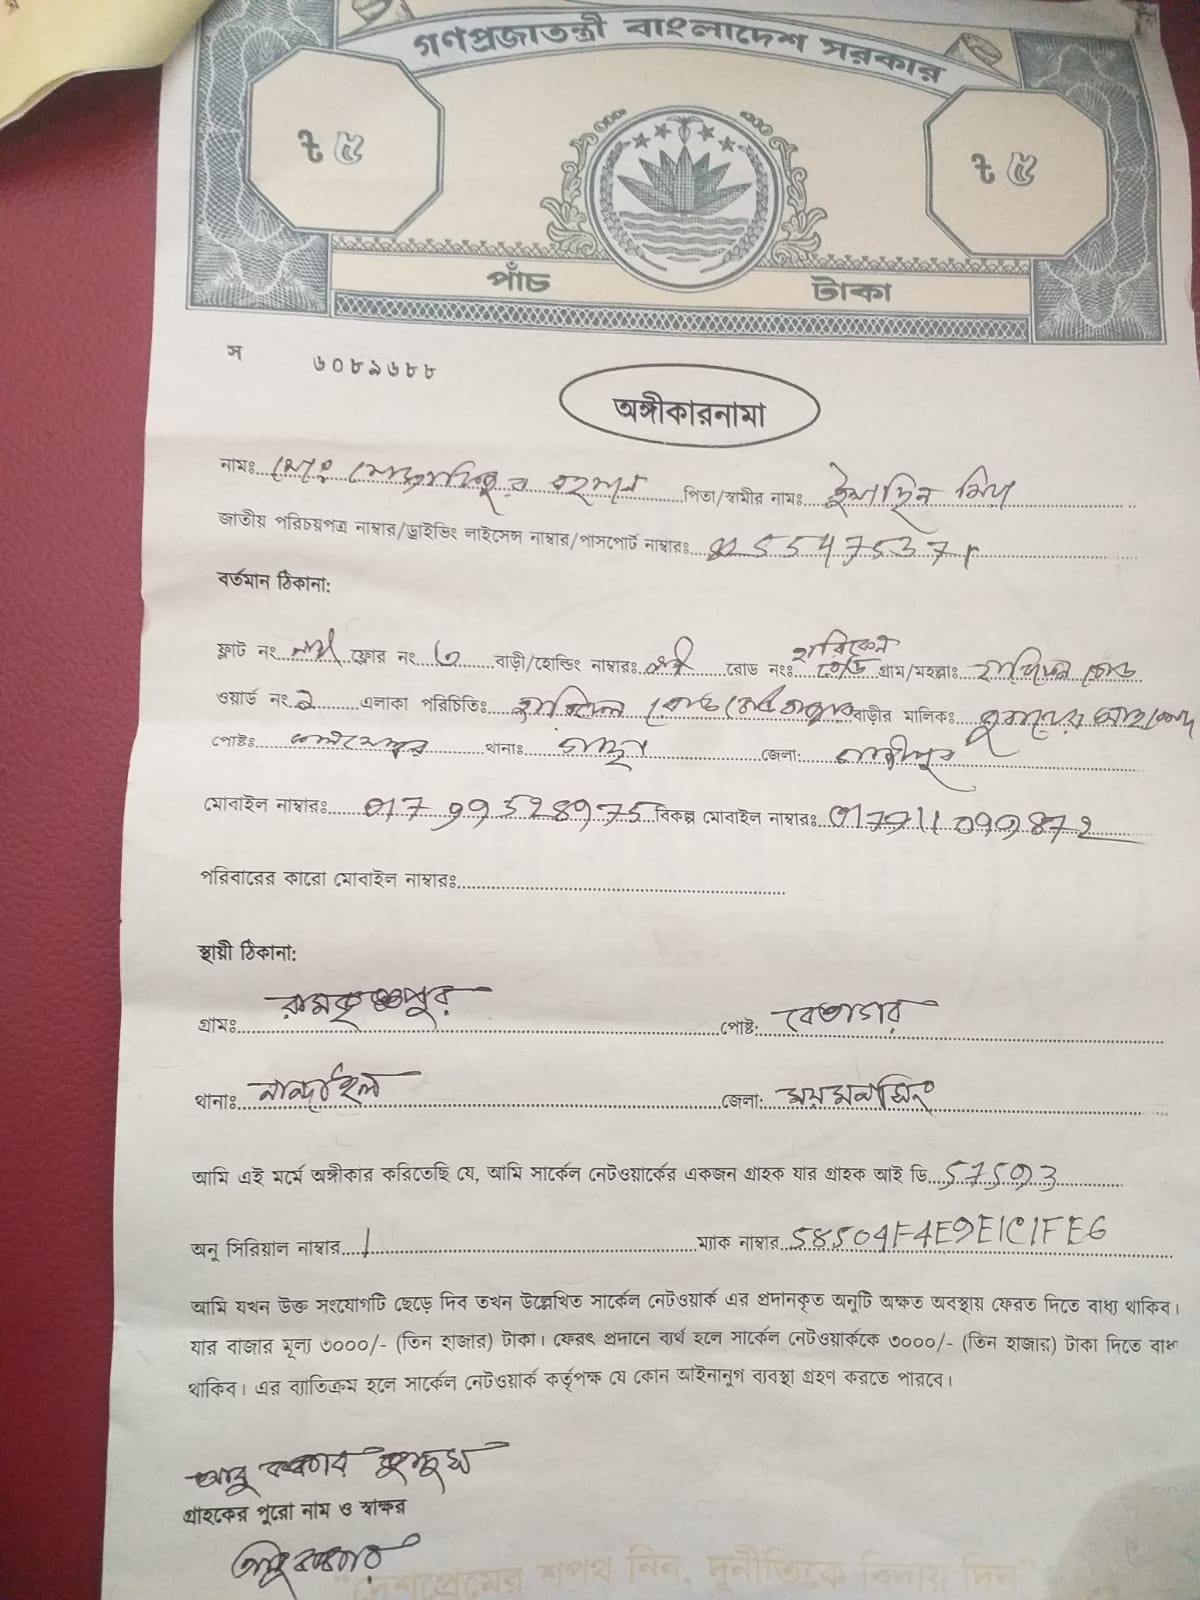 গণপ্রজাতন্ত্রী বাংলাদেশ সরকার
৳ ৫ ৳ ৫
পাঁচ টাকা
স ৬০৮৯৬৮৮
অঙ্গীকারনামা
নামঃ মোঃ রহমান পিতা/স্বামীর নামঃ ইয়াছিন মিয়া
জাতীয় পরিচয়পত্র নাম্বার/ড্রাইভিং লাইসেন্স নাম্বার/পাসপোর্ট নাম্বারঃ
বর্তমান ঠিকানা:
ফ্লাট নং ফ্লোর নং ৩ বাড়ী/হোল্ডিং নাম্বারঃ রোড নংঃ হারিকেন রোড গ্রাম/মহল্লাঃ হারিকেন রোড
ওয়ার্ড নং এলাকা পরিচিতিঃ হারিকেন রোড বাড়ীর মালিকঃ
পোষ্টঃ থানাঃ গাছা জেলা: গাজীপুর
মোবাইল নাম্বারঃ 01799528975 বিকল্প মোবাইল নাম্বারঃ
পরিবারের কারো মোবাইল নাম্বারঃ
স্থায়ী ঠিকানা:
গ্রামঃ রামকৃষ্ণপুর পোষ্ট: বেতাগৈর
থানাঃ নান্দাইল জেলা: ময়মনসিং
আমি এই মর্মে অঙ্গীকার করিতেছি যে, আমি সার্কেল নেটওয়ার্কের একজন গ্রাহক যার গ্রাহক আই ডি 57593
অনু সিরিয়াল নাম্বার 1 ম্যাক নাম্বার 58504F4E9E1C1FE6
আমি যখন উক্ত সংযোগটি ছেড়ে দিব তখন উল্লেখিত সার্কেল নেটওয়ার্ক এর প্রদানকৃত অনুটি অক্ষত অবস্থায় ফেরত দিতে বাধ্য থাকিব।
যার বাজার মূল্য ৩০০০/- (তিন হাজার) টাকা। ফেরৎ প্রদানে ব্যর্থ হলে সার্কেল নেটওয়ার্ককে ৩০০০/- (তিন হাজার) টাকা দিতে বাধ্য
থাকিব। এর ব্যাতিক্রম হলে সার্কেল নেটওয়ার্ক কর্তৃপক্ষ যে কোন আইনানুগ ব্যবস্থা গ্রহণ করতে পারবে।
আবু বক্কার
গ্রাহকের পুরো নাম ও স্বাক্ষর
আবু বক্কার
"দেশপ্রেমের শপথ নিন, দুর্নীতিকে বিদায় দিন"